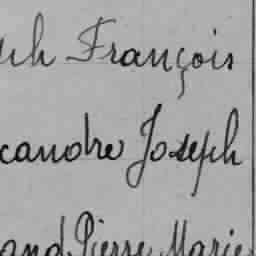 François
xandre Joseph
and Pierre Marie